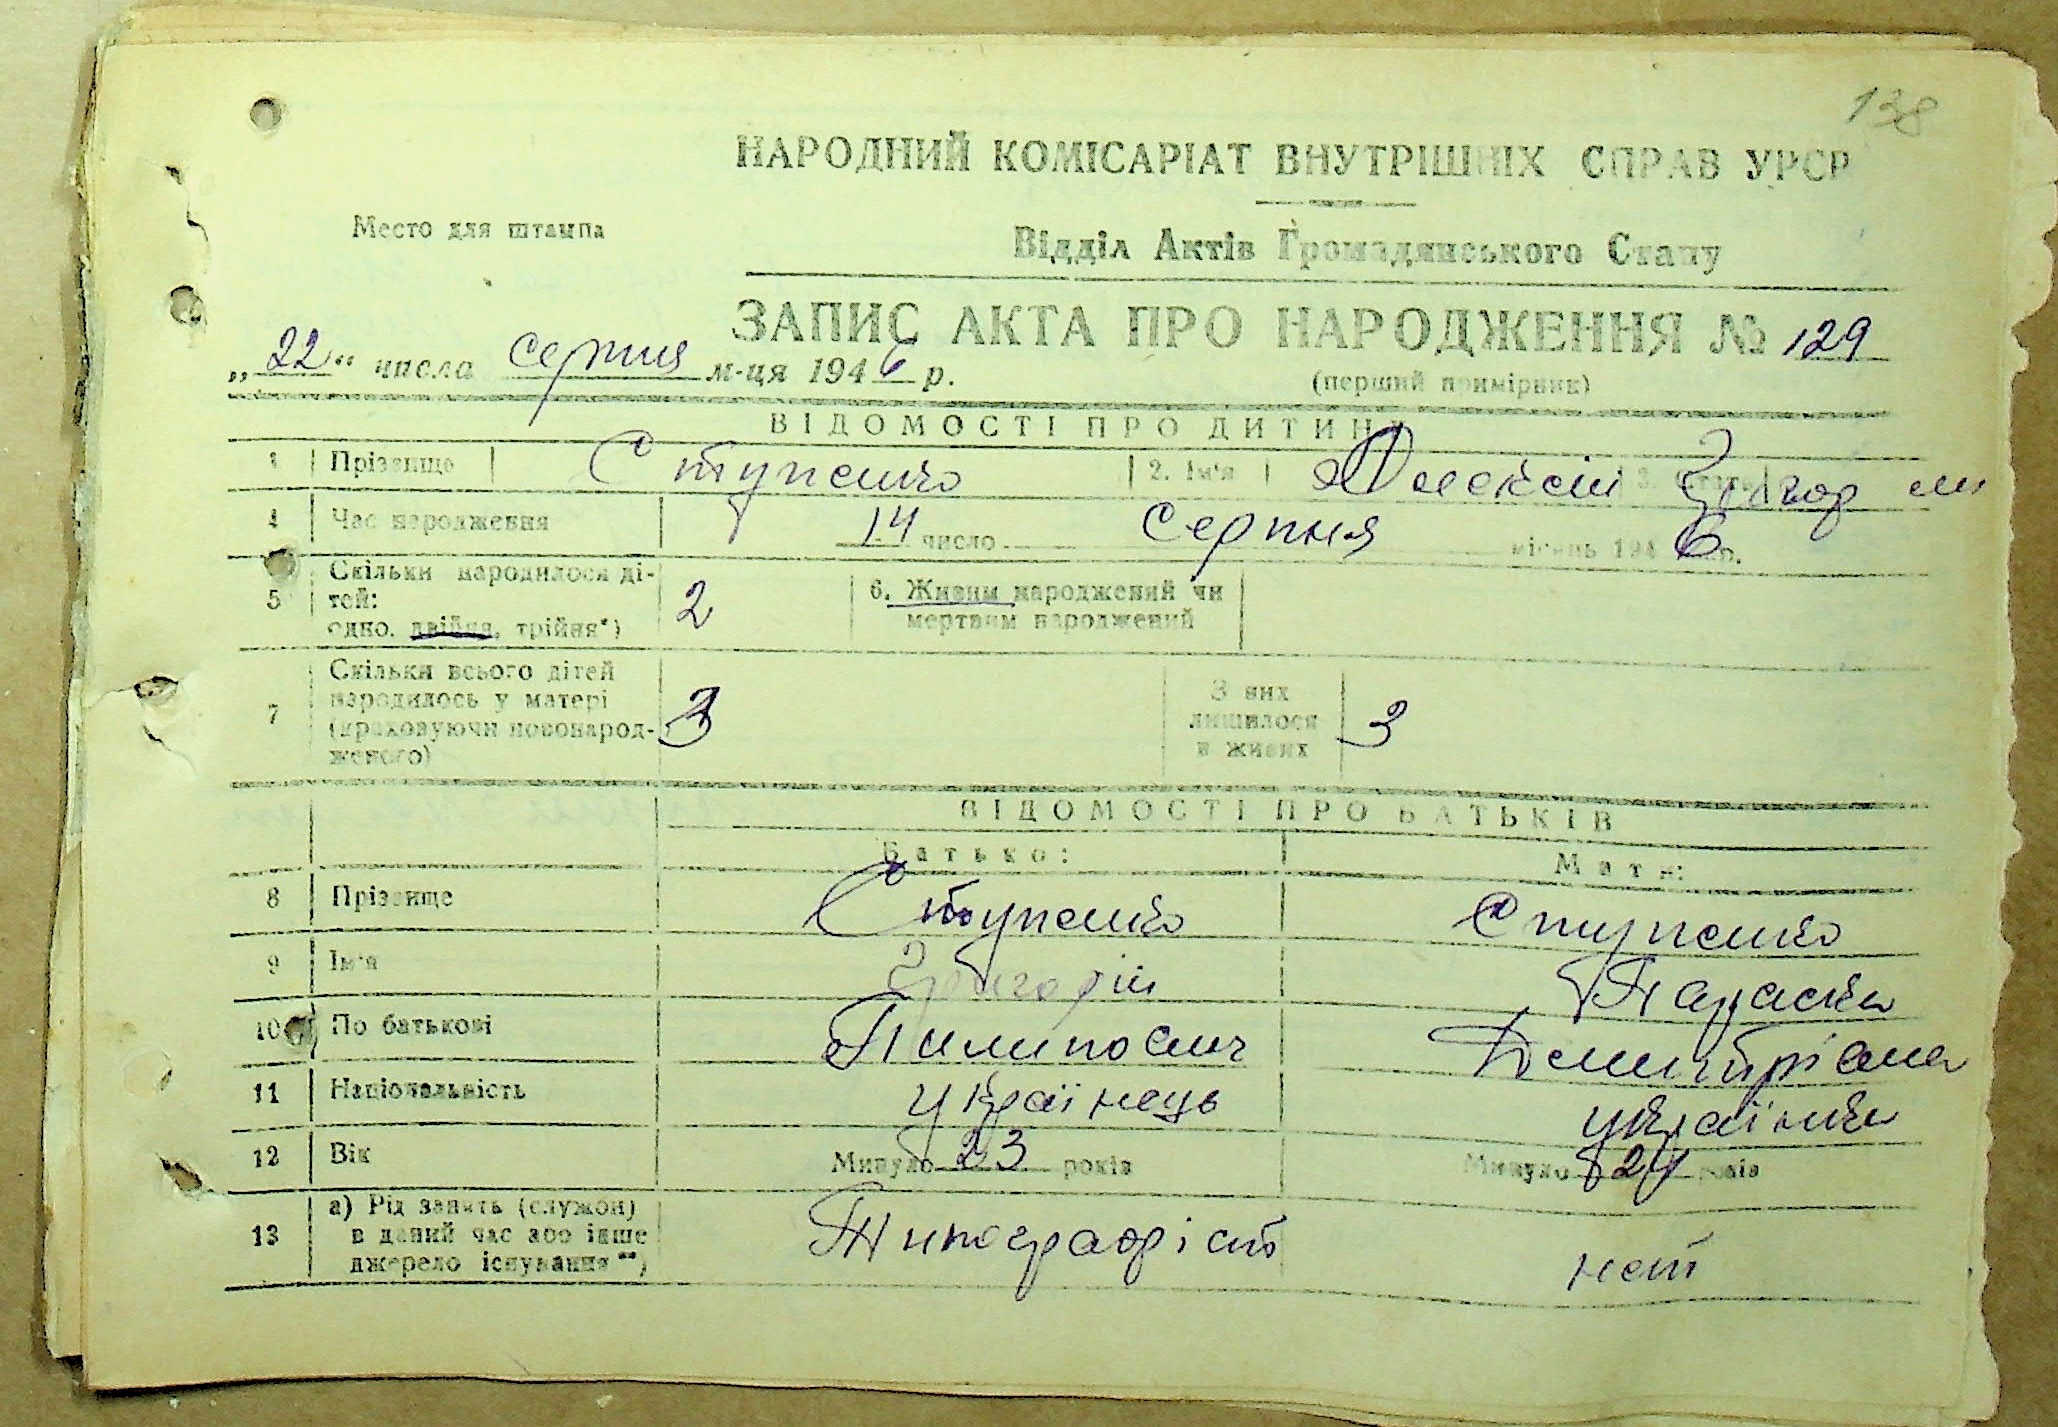 138
НАРОДНИЙ КОМІСАРІАТ ВНУТРІШНІХ СПРАВ УРСР
Место для штампа
Відділ Актів Громадянського Стану
ЗАПИС АКТА ПРО НАРОДЖЕННЯ № 129
„22“ числа серпня м-ця 1946 р.
(перший примірник)
ВІДОМОСТІ ПРО ДИТИНУ
1 Прізвище Ступенко 2. Ім'я Олексій 3. Стать
4 Час народження 14 число серпня місяць 1946 р.
5 Скільки народилося ді-
тей:
одно, двійня, трійня*) 2
6. Живим народжений чи
мертвим народжений
7 Скільки всього дітей
народилось у матері
(враховуючи новонарод-
женого) 3
З них
лишилося
в живих 3
ВІДОМОСТІ ПРО БАТЬКІВ
Батько: Мати:
8 Прізвище Ступенко Ступенко
9 Ім'я Григорій Параска
10 По батькові Пилипович Дмитрівна
11 Національність українець українка
12 Вік Минуло 23 років Минуло 24 років
13 а) Рід занять (служби)
в даний час або інше
джерело існування**) Типографіст нет